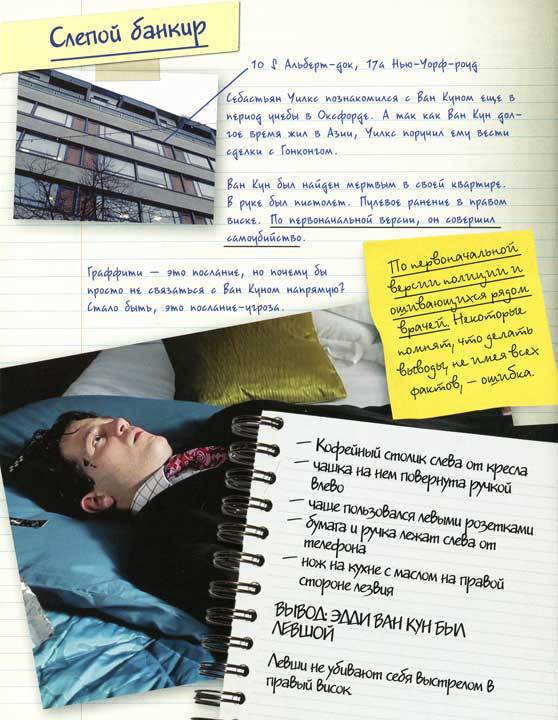 Слепой банкир
10 $ Альберт-док, 17а Нью-Уорф-роуд
Себастьян Уилкс познакомился с Ван Куном еще в
период учебы в Оксфорде. А так как Ван Кун дол-
гое время жил в Азии, Уилкс поручил ему вести
сделки с Гонконгом.
Ван Кун был найден мертвым в своей квартире.
В руке был пистолет. Пулевое ранение в правом
виске. По первоначальной версии, он совершил
самоубийство.
Граффити — это послание, но почему бы
просто не связаться с Ван Куном напрямую?
Стало быть, это послание-угроза.
По первоначальной
версии полиции и
ошивающихся рядом
врачей. Некоторые
помнят, что делать
выводы, не имея всех
фактов, — ошибка.
— Кофейный столик слева от кресла
— чашка на нем повернута ручкой
влево
— чаще пользовался левыми розетками
— бумага и ручка лежат слева от
телефона
— нож на кухне с маслом на правой
стороне лезвия
ВЫВОД: ЭДДИ ВАН КУН БЫЛ
ЛЕВШОЙ
Левши не убивают себя выстрелом в
правый висок